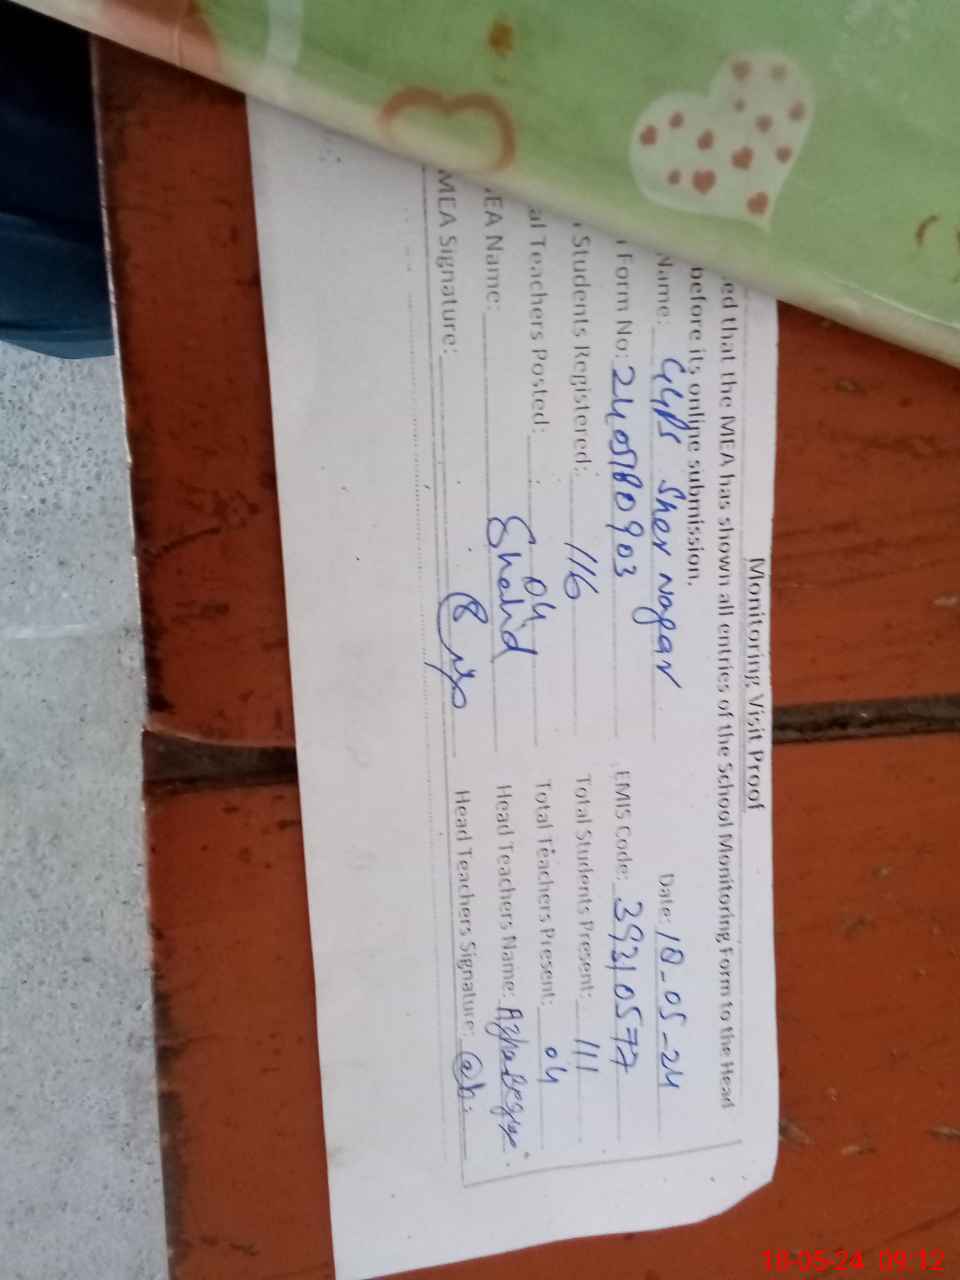 Monitoring Visit Proof
ed that the MEA has shown all entries of the School Monitoring Form to the Head
before its online submission.
Name: GGPS Sher Nagar Date: 18-05-24
Form No: 2405180903 EMIS Code: 39210577
Students Registered: 116 Total Students Present: 111
al Teachers Posted: 04 Total Teachers Present: 04
EA Name: Shahid Head Teachers Name:
MEA Signature: Head Teachers Signature:
18-05-24 09:12